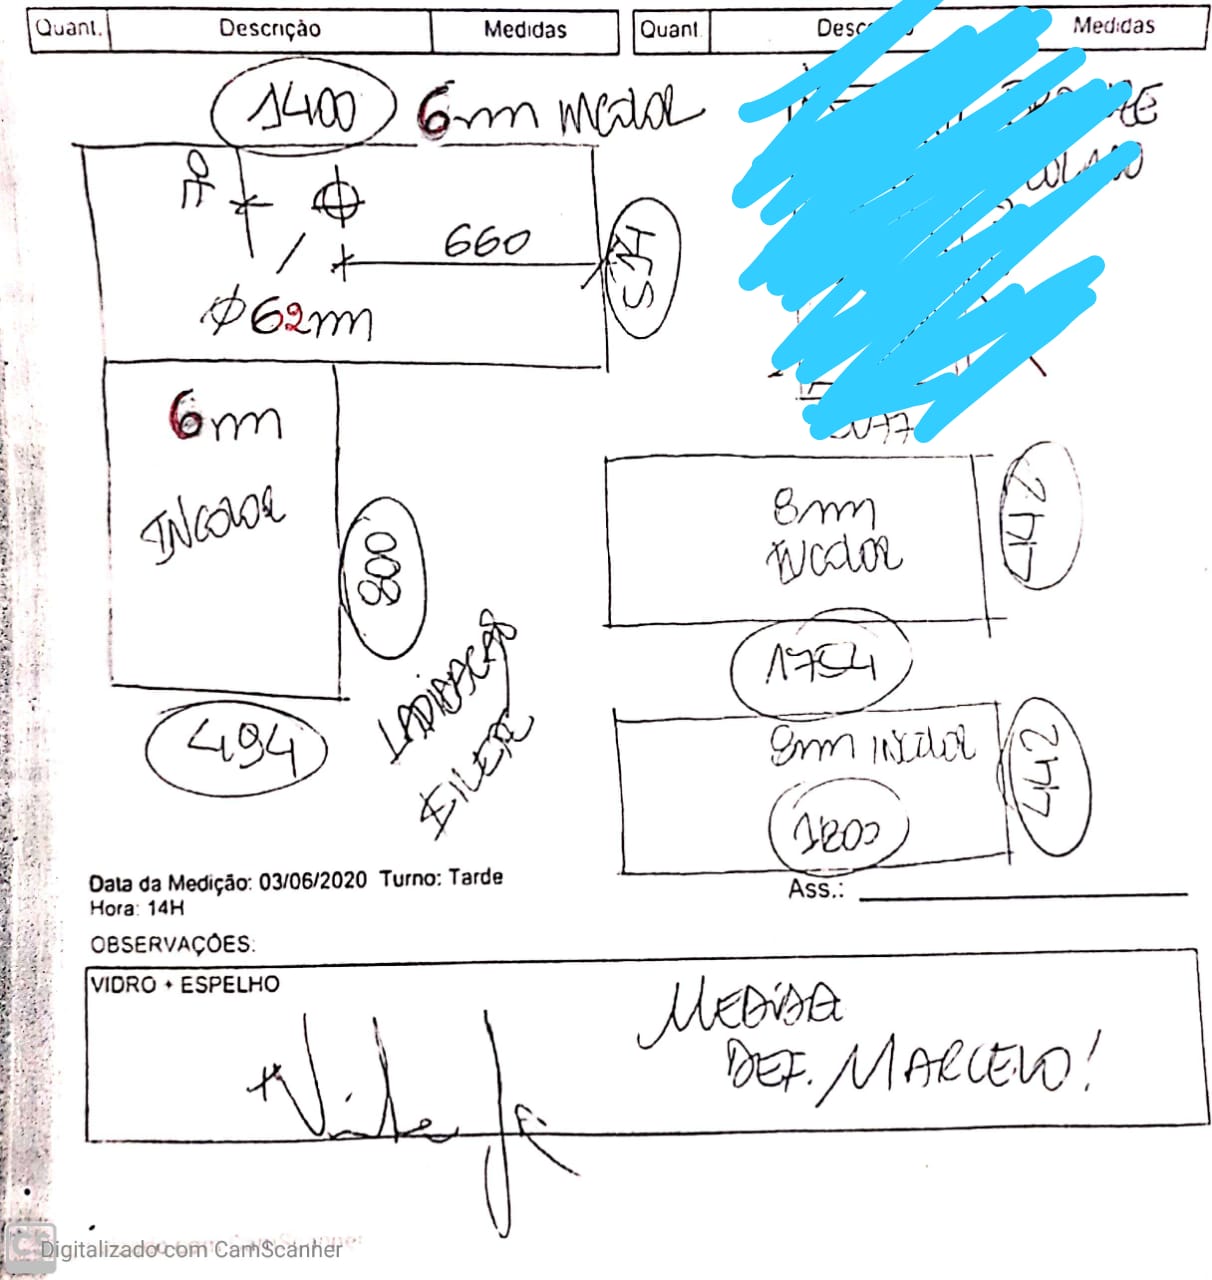 Quant. Descrição Medidas
Quant Medidas
1400 6mm incolor
660
574
Ø62mm
6mm
INCOLOR
800
494
8mm
INCOLOR
442
1754
8mm INCOLOR
442
1800
Data da Medição: 03/06/2020 Turno: Tarde
Hora: 14H
Ass.:
OBSERVAÇÕES:
VIDRO + ESPELHO
MEDIDA
DEF. MARCELO!
Digitalizado com CamScanner